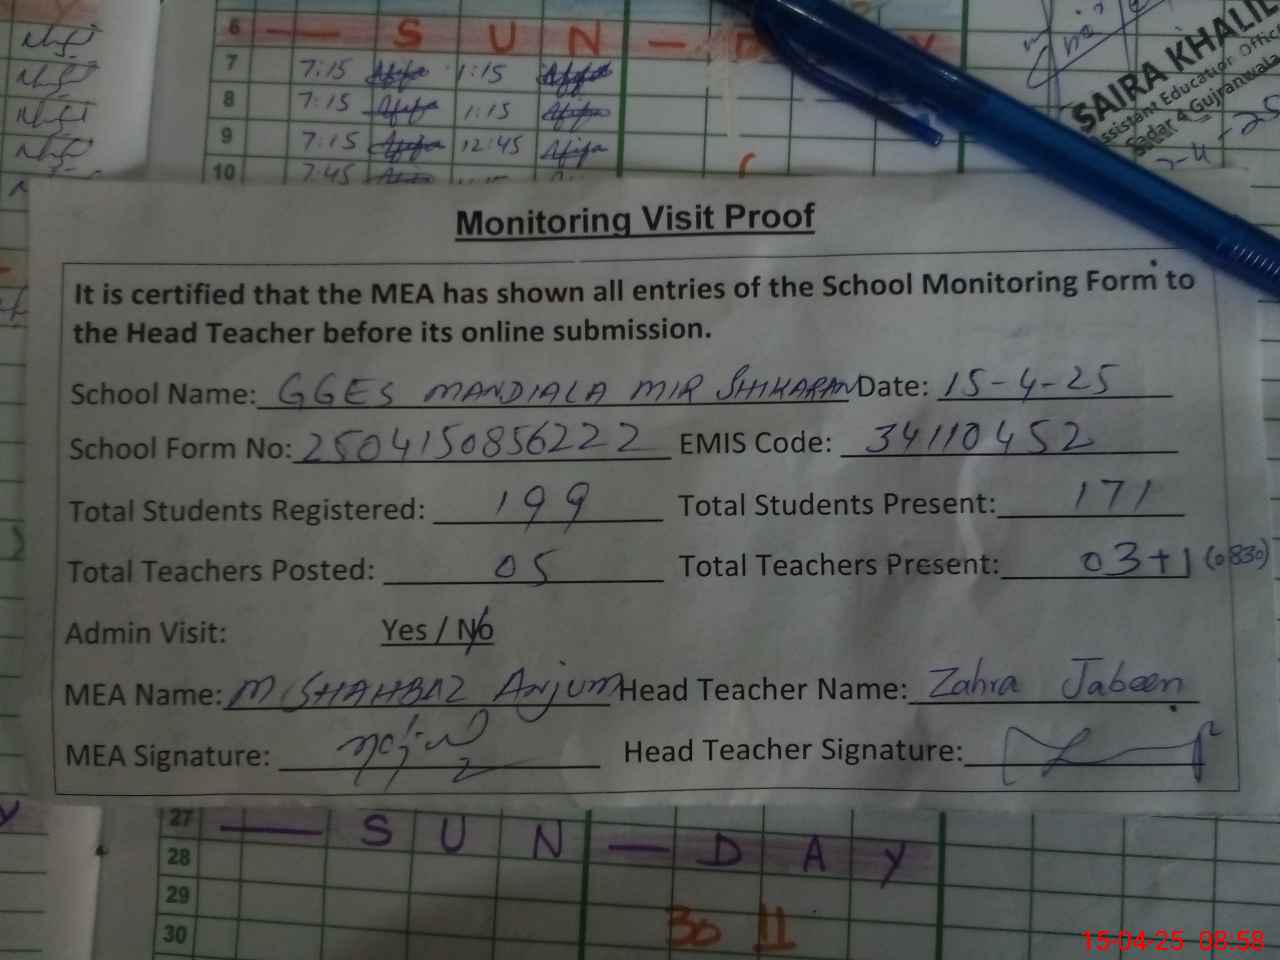 6 — S U N — D Y
7 7:15 Afifa 1:15 Afifa
8 7:15 Afifa 1:15 Afifa
9 7:15 Afifa 12:45 Afifa
10 7:45
SAIRA KHALIL
Assistant Education Offic
Sadar 4 Gujranwala
Monitoring Visit Proof
It is certified that the MEA has shown all entries of the School Monitoring Form to
the Head Teacher before its online submission.
School Name: GGES MANDIALA MIR SHIKARAN Date: 15-4-25
School Form No: 2504150856222 EMIS Code: 34110452
Total Students Registered: 199 Total Students Present: 171
Total Teachers Posted: 05 Total Teachers Present: 03+1 (0830)
Admin Visit: Yes / No
MEA Name: M SHAHBAZ ANJUM Head Teacher Name: Zahra Jabeen
MEA Signature: Head Teacher Signature:
27 — S U N — D A Y
28
29
30 30 11
15-04-25 08:58